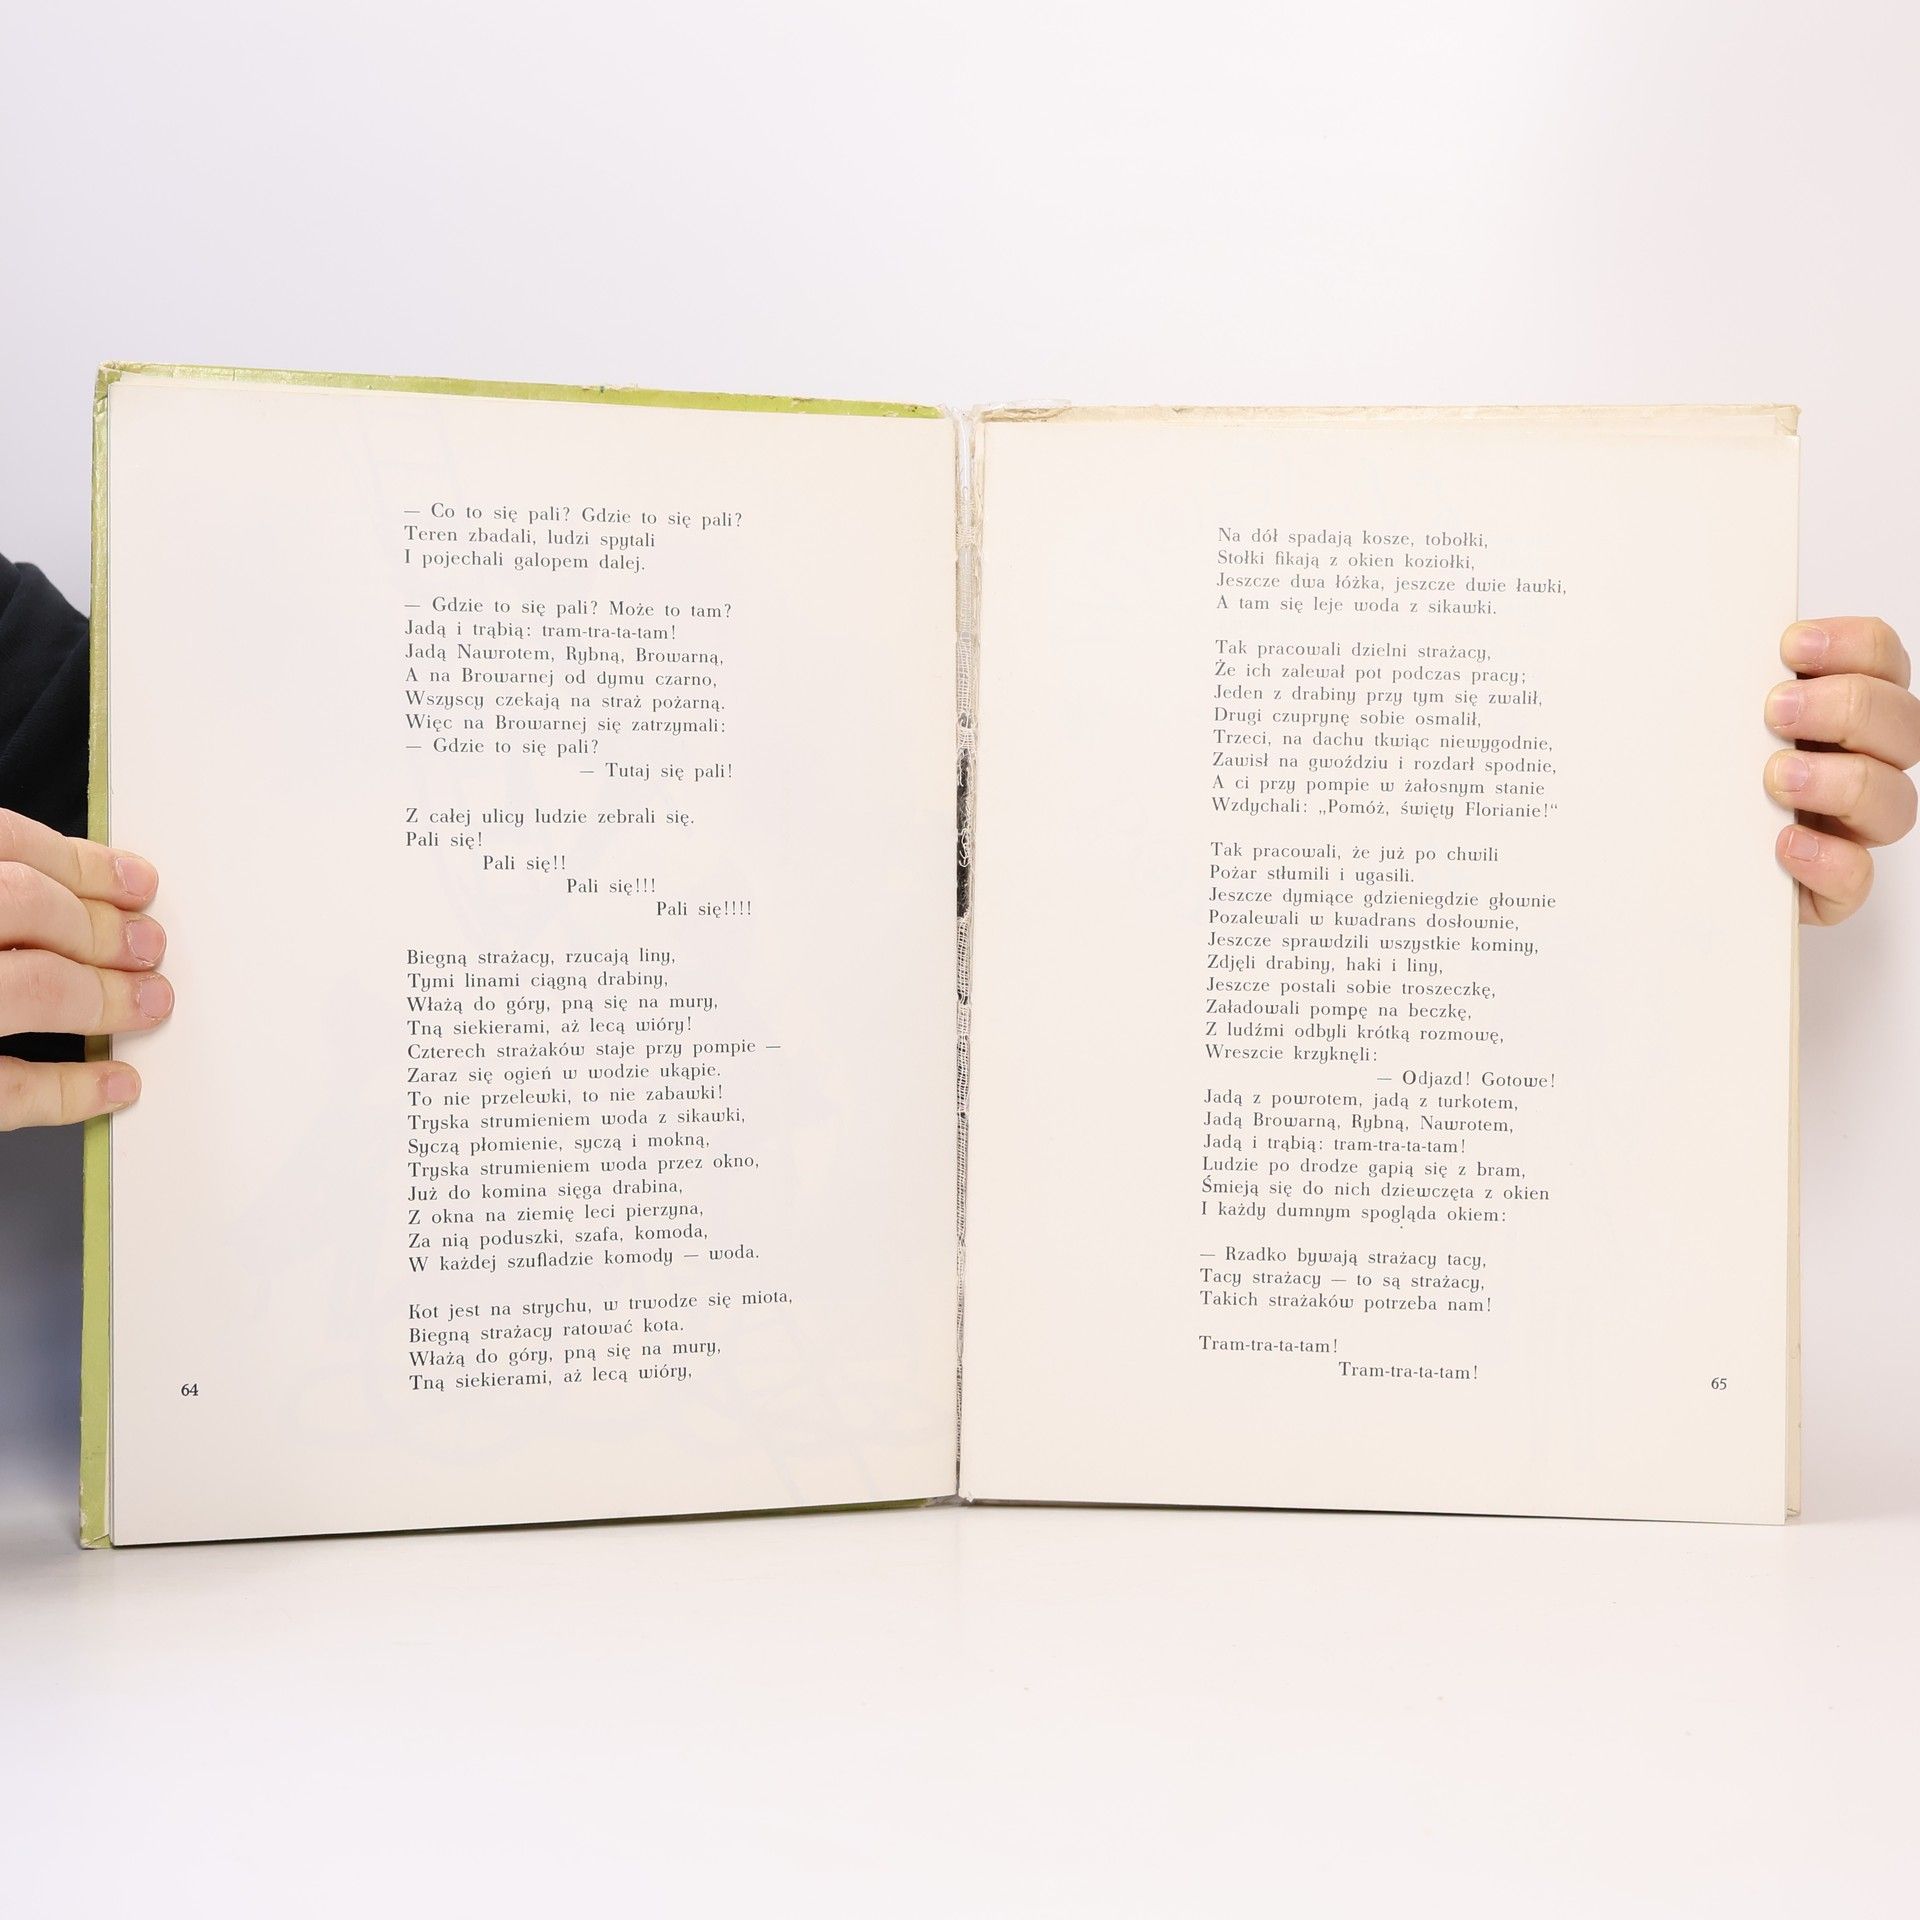 — Co to się pali? Gdzie to się pali?
Teren zbadali, ludzi spytali
I pojechali galopem dalej.
— Gdzie to się pali? Może to tam?
Jadą i trąbią: tram-tra-ta-tam!
Jadą Nawrotem, Rybną, Browarną,
A na Browarnej od dymu czarno,
Wszyscy czekają na straż pożarną.
Więc na Browarnej się zatrzymali:
— Gdzie to się pali?
— Tutaj się pali!
Z całej ulicy ludzie zebrali się.
Pali się!
Pali się!!
Pali się!!!
Pali się!!!!
Biegną strażacy, rzucają liny,
Tymi linami ciągną drabiny,
Włażą do góry, pną się na mury,
Tną siekierami, aż lecą wióry!
Czterech strażaków staje przy pompie —
Zaraz się ogień w wodzie ukąpie.
To nie przelewki, to nie zabawki!
Tryska strumieniem woda z sikawki,
Syczą płomienie, syczą i mokną,
Tryska strumieniem woda przez okno,
Już do komina sięga drabina,
Z okna na ziemię leci pierzyna,
Za nią poduszki, szafa, komoda,
W każdej szufladzie komody — woda.
Kot jest na strychu, w trwodze się miota,
Biegną strażacy ratować kota.
Włażą do góry, pną się na mury,
Tną siekierami, aż lecą wióry,
64
Na dół spadają kosze, tobołki,
Stołki fikają z okien koziołki,
Jeszcze dwa łóżka, jeszcze dwie ławki,
A tam się leje woda z sikawki.
Tak pracowali dzielni strażacy,
Że ich zalewał pot podczas pracy;
Jeden z drabiny przy tym się zwalił,
Drugi czuprynę sobie osmalił,
Trzeci, na dachu tkwiąc niewygodnie,
Zawisł na gwoździu i rozdarł spodnie,
A ci przy pompie w żałosnym stanie
Wzdychali: „Pomóż, święty Florianie!“
Tak pracowali, że już po chwili
Pożar stłumili i ugasili.
Jeszcze dymiące gdzieniegdzie głownie
Pozalewali w kwadrans dosłownie,
Jeszcze sprawdzili wszystkie kominy,
Zdjęli drabiny, haki i liny,
Jeszcze postali sobie troszeczkę,
Załadowali pompę na beczkę,
Z ludźmi odbyli krótką rozmowę,
Wreszcie krzyknęli:
— Odjazd! Gotowe!
Jadą z powrotem, jadą z turkotem,
Jadą Browarną, Rybną, Nawrotem,
Jadą i trąbią: tram-tra-ta-tam!
Ludzie po drodze gapią się z bram,
Śmieją się do nich dziewczęta z okien
I każdy dumnym spogląda okiem:
— Rzadko bywają strażacy tacy,
Tacy strażacy — to są strażacy,
Takich strażaków potrzeba nam!
Tram-tra-ta-tam!
Tram-tra-ta-tam!
65